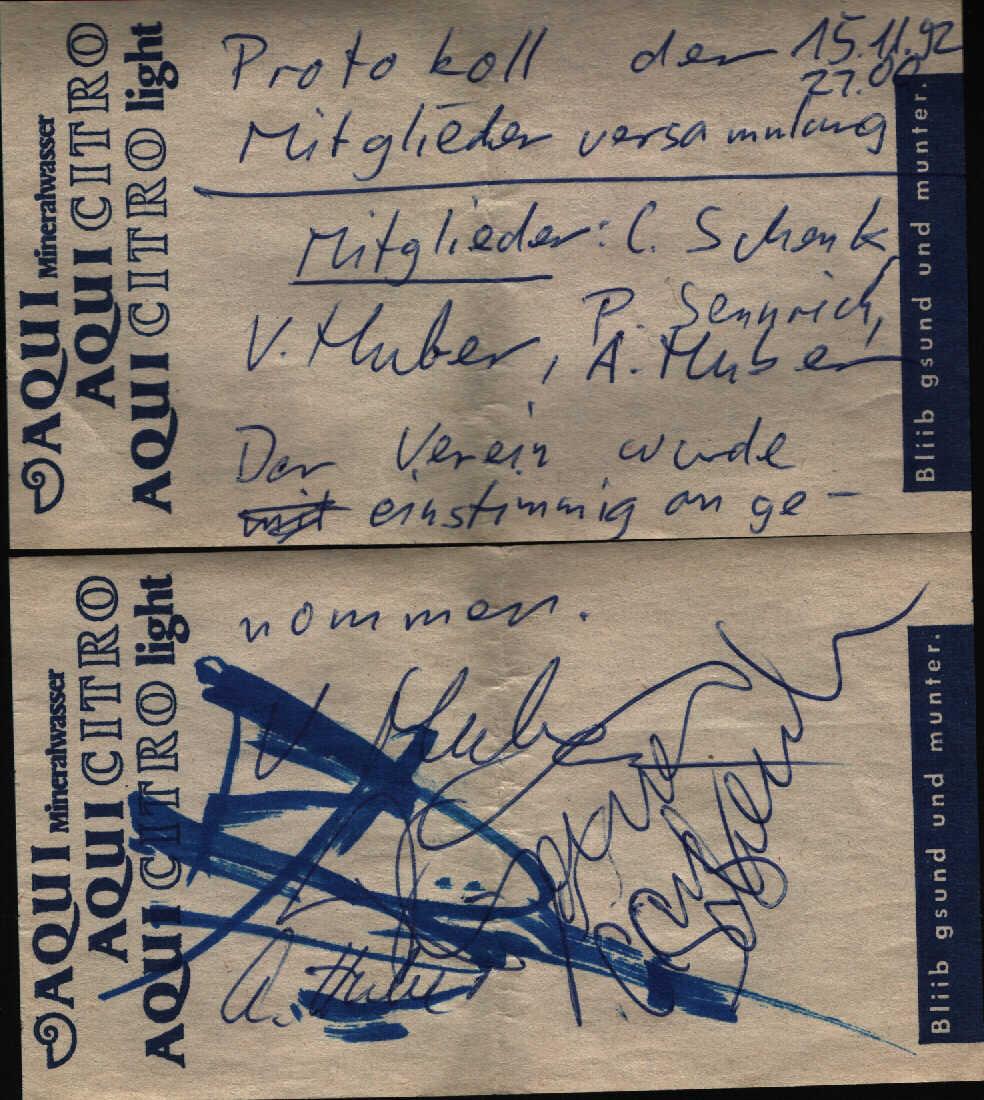 AQUI Mineralwasser
AQUI CITRO
AQUI CITRO light
Protokoll der 15.11.92
22.00
Mitgliederversammlung
Mitglieder: C. Schenk,
V. Huber, P. Sennrich,
A. Huber
Der Verein wurde
mit einstimmig ange-
Bliib gsund und munter.
AQUI Mineralwasser
AQUI CITRO
AQUI CITRO light
nommen.
V. Huber
A. Huber
Bliib gsund und munter.